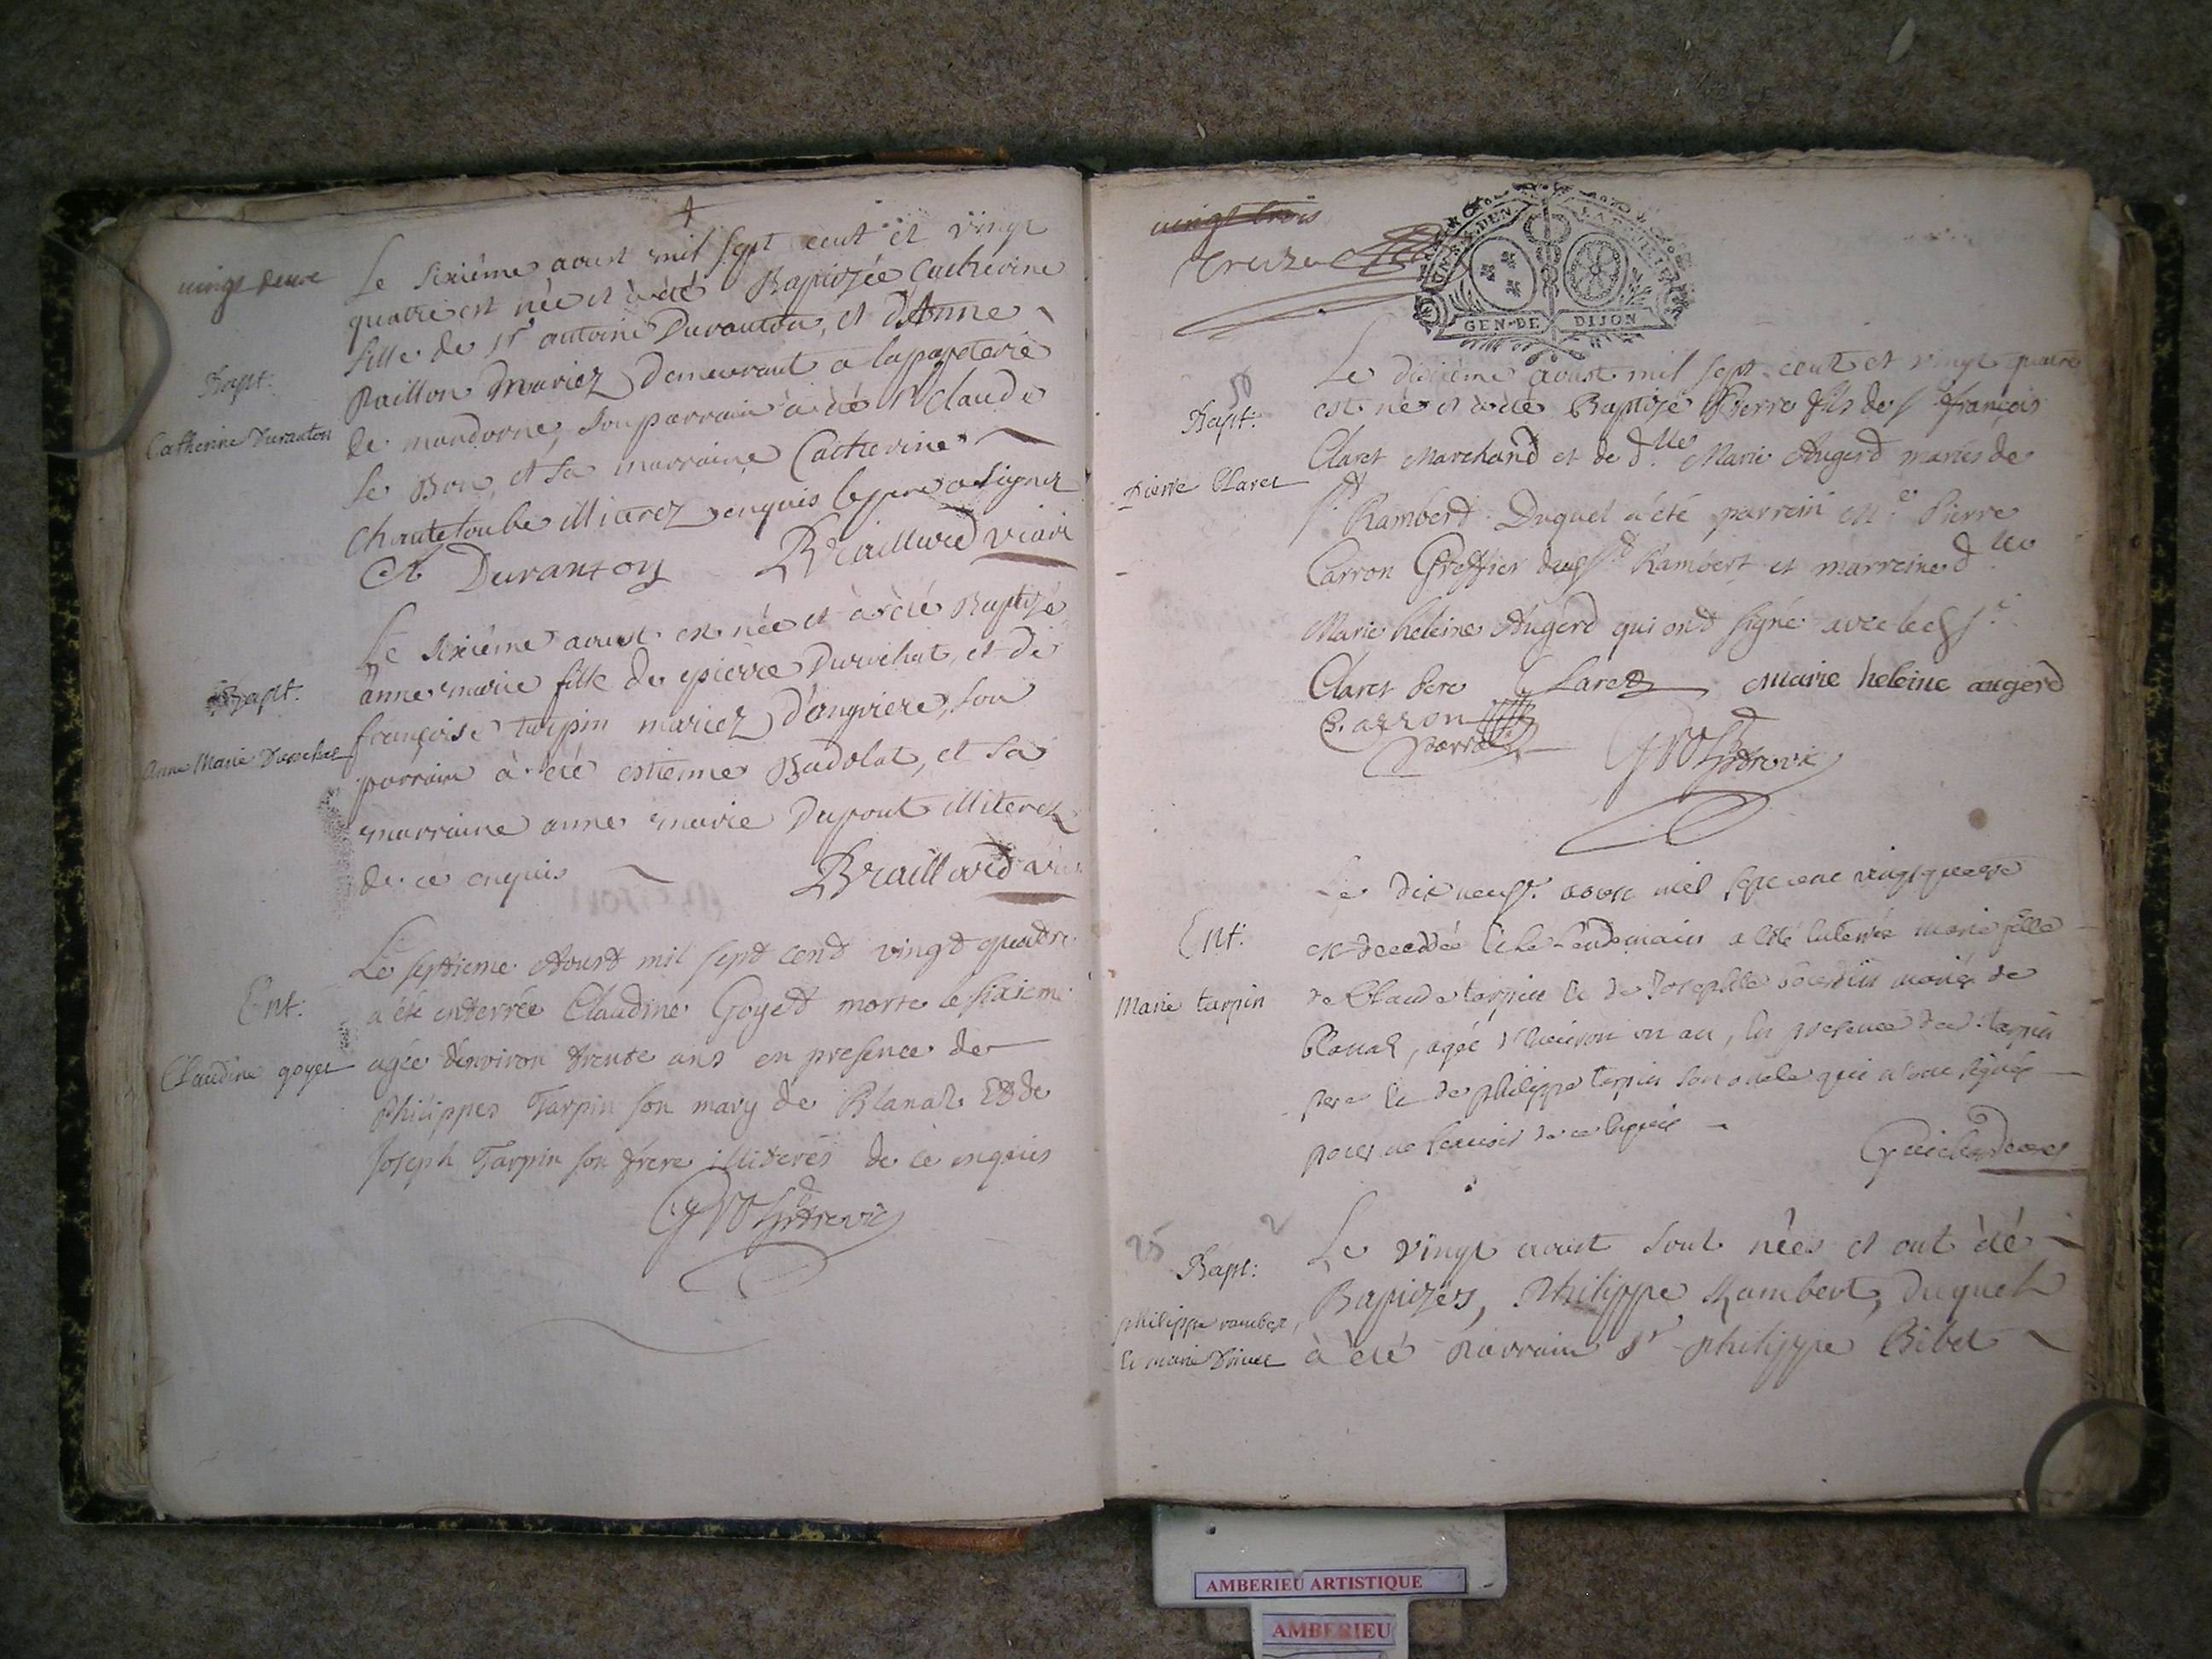 vingt deux
Le sixième aoust mil sept cent et vingt
quatre est née et a été Baptizée Catherine
fille de Sr antoine Duranton, et d'Anne
Paillon mariez demeurant a la papeterie
de mandorne, son parrain a été Sr Claude
le Bon, et sa marraine Catherine
Chanteloube illiterez enquis le pere a signez
A Duranton Braillard vicaire
Bapt:
Catherine Duranton
Le sixième aoust est née et a été Baptizé
anne marie fille de pierre Durochat, et de
françoise tarpin mariez d'angriere, son
parrain à été estienne Badolat, et sa
marraine anne marie Dupont illiterez
de ce enquis Braillard vic
Bapt.
Anne Marie Durochat
Le septieme Aoust mil sept cent vingt quatre
a été enterrée Claudine Goyet morte le sixieme
agée d'environ trente ans en presence de
Philippes Tarpin son mary de Blanaz Et de
Joseph Tarpin son frere illiterés de ce enquis
Ent:
Claudine goyet
vingt trois
treize
GEN·DE DIJON
50
Le dixième aoust mil sept cent et vingt quatre
est né et a été Baptizé Pierre fils de Sr françois
Claret Marchand et de dlle Marie Augerd mariés de
St Rambert. Duquel a été parrein Me Pierre
Carron Greffier dud St Rambert et marreine dlle
Marie heleine Augerd qui ont signé avec led Sr
Claret Pere Claret Marie heleine augerd
Carron
parrain
Bapt:
Pierre Claret
Le dix neuf aoust mil sept cent vingt quatre
est decedée et le lendemain a été enterrée marie fille
de Claude tarpin et de Josephte mariés de
Blanaz, agée d'environ un an, en presence dud. tarpin
pere et de philippe tarpin son oncle qui n'ont signés
pour ne sçavoir de ce enquis
Ent:
Marie tarpin
25 2
Le vingt aoust sont nées et ont été
Baptizés, Philippe Rambert, duquel
à été Parrain Sr philippe Bibet
Bapt:
philippe rambert,
et marie
AMBERIEU ARTISTIQUE
AMBERIEU